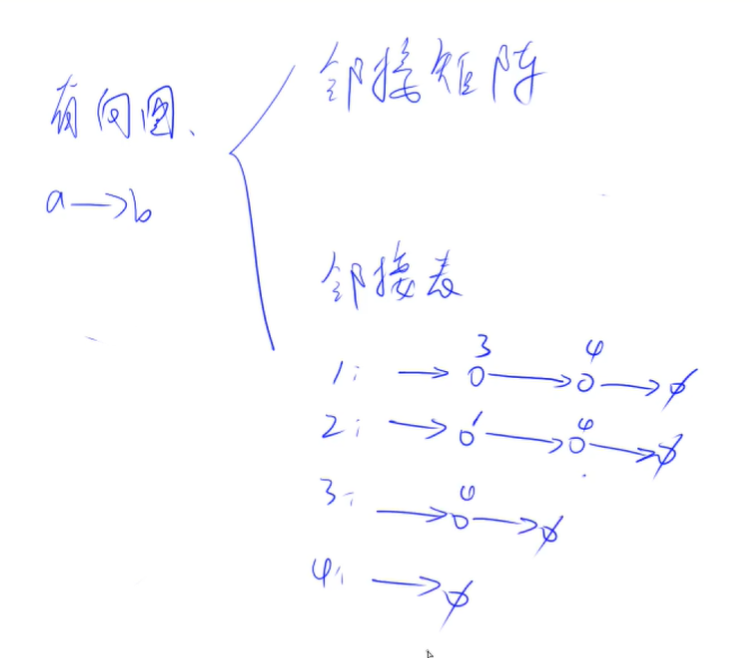 有向图、
a→b
邻接矩阵
邻接表
1: → 3 → 4 → ∅
2: → 1 → 4 → ∅
3: → 4 → ∅
4: → ∅